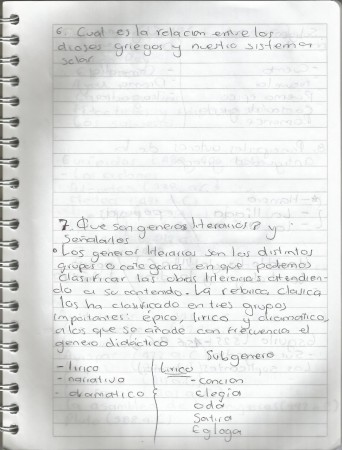 6. Cual es la relacion entre los
dioses griegos y nuestro sistema
solar
7. Que son generos literarios? y
señalarlos
Los generos literarios son los distintos
grupos o categorias en que podemos
clasificar las obras literarias atendien-
do a su contenido. La retorica clasica
los ha clasificado en tres grupos
importantes: épico, lirico y dramatico,
a los que se añade con frecuencia el
genero didáctico
Subgenero
- lirico
- narrativo
- dramatico
Lirico
- cancion
elegia
oda
Satira
Egloga